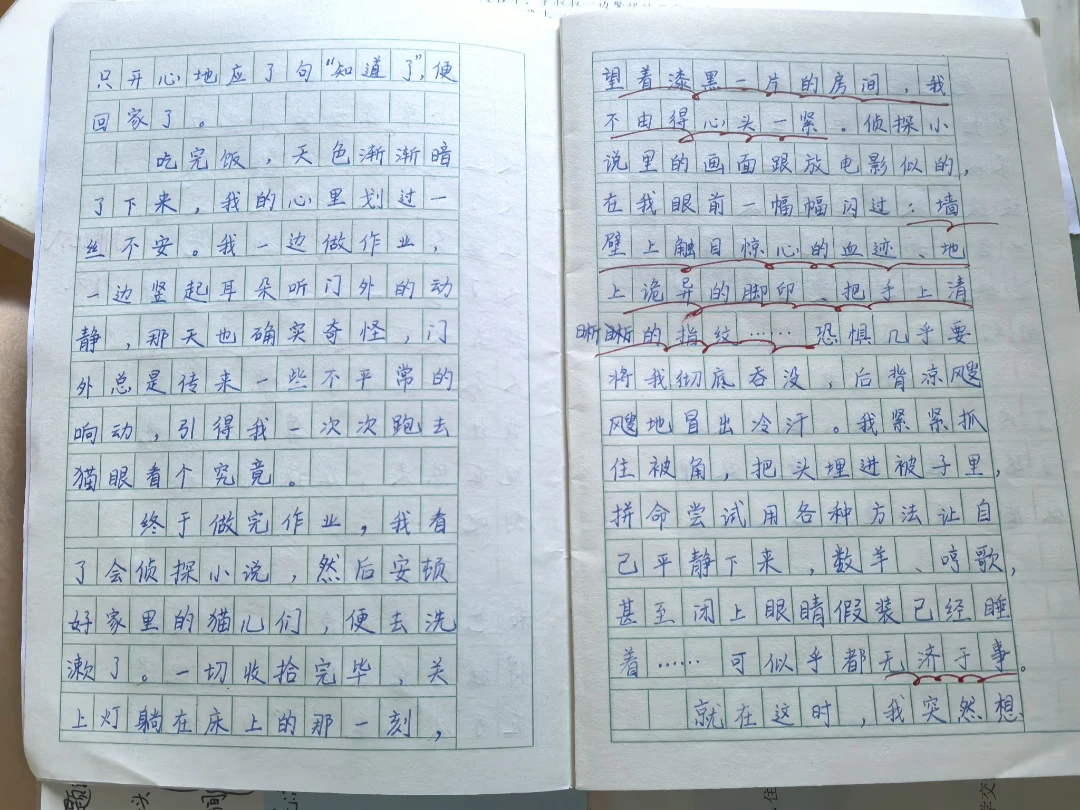 只开心地应了句“知道了”，便
回家了。
吃完饭，天色渐渐暗
了下来，我的心里划过一
丝不安。我一边做作业，
一边竖起耳朵听门外的动
静，那天也确实奇怪，门
外总是传来一些不平常的
响动，引得我一次次跑去
猫眼看个究竟。
终于做完作业，我看
了会侦探小说，然后安顿
好家里的猫儿们，便去洗
漱了。一切收拾完毕，关
上灯躺在床上的那一刻，
望着漆黑一片的房间，我
不由得心头一紧。侦探小
说里的画面跟放电影似的，
在我眼前一幅幅闪过：墙
壁上触目惊心的血迹、地
上诡异的脚印、把手上清
晰的指纹……恐惧几乎要
将我彻底吞没，后背凉飕
飕地冒出冷汗。我紧紧抓
住被角，把头埋进被子里，
拼命尝试用各种方法让自
己平静下来，数羊、哼歌，
甚至闭上眼睛假装已经睡
着……可似乎都无济于事。
就在这时，我突然想